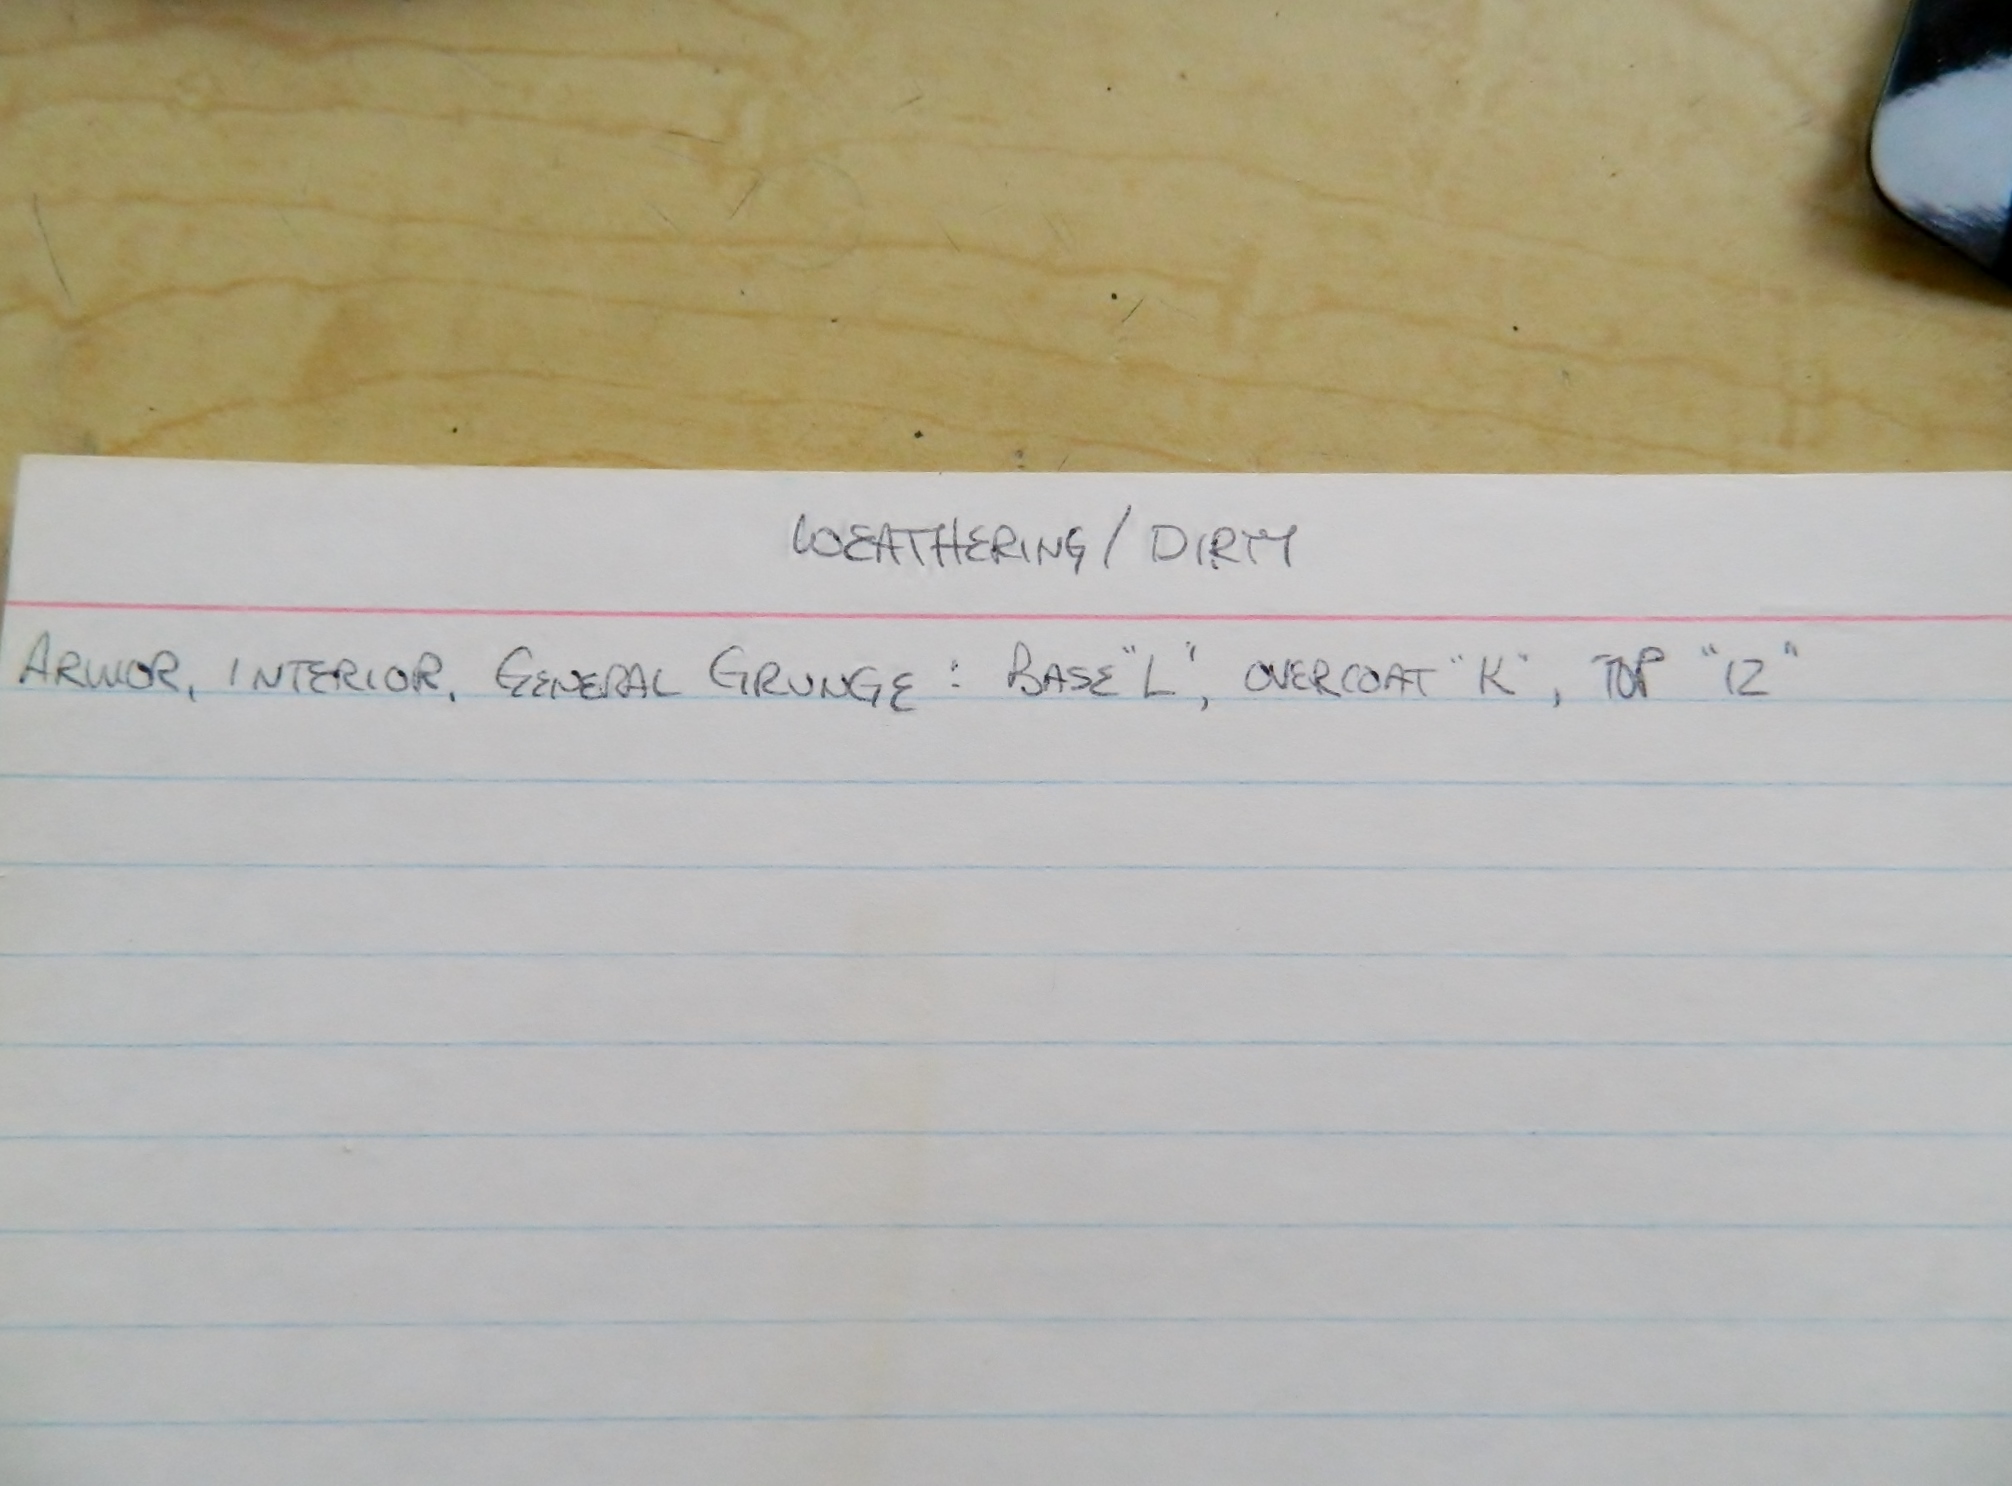 WEATHERING / DIRTY
ARMOR, INTERIOR, GENERAL GRUNGE : BASE "L", OVERCOAT "K", TOP "12"